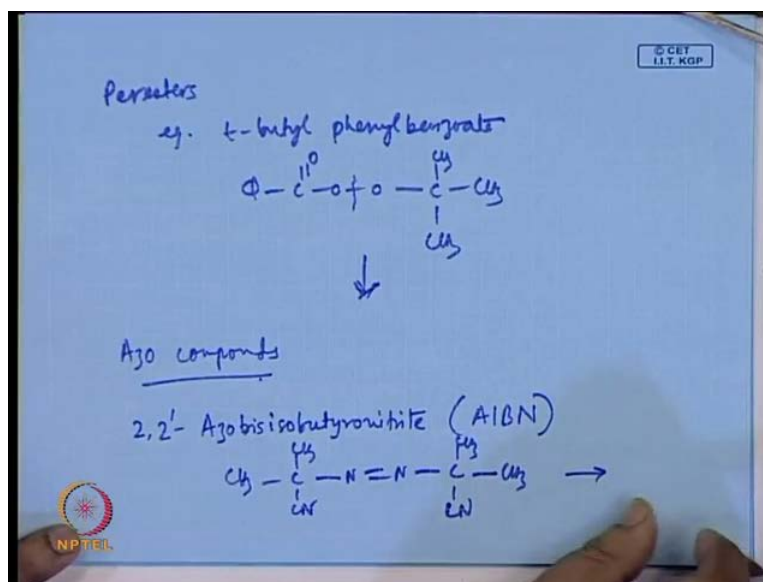 © CET
I.I.T. KGP
Peresters
eg. t-butyl phenylbenzoate
O
CH3
Φ - C - O + O - C - CH3
CH3
Azo compounds
2,2'- Azobisisobutyronitrite (AIBN)
CH3 CH3
CH3 - C - N = N - C - CH3 →
CN CN
NPTEL